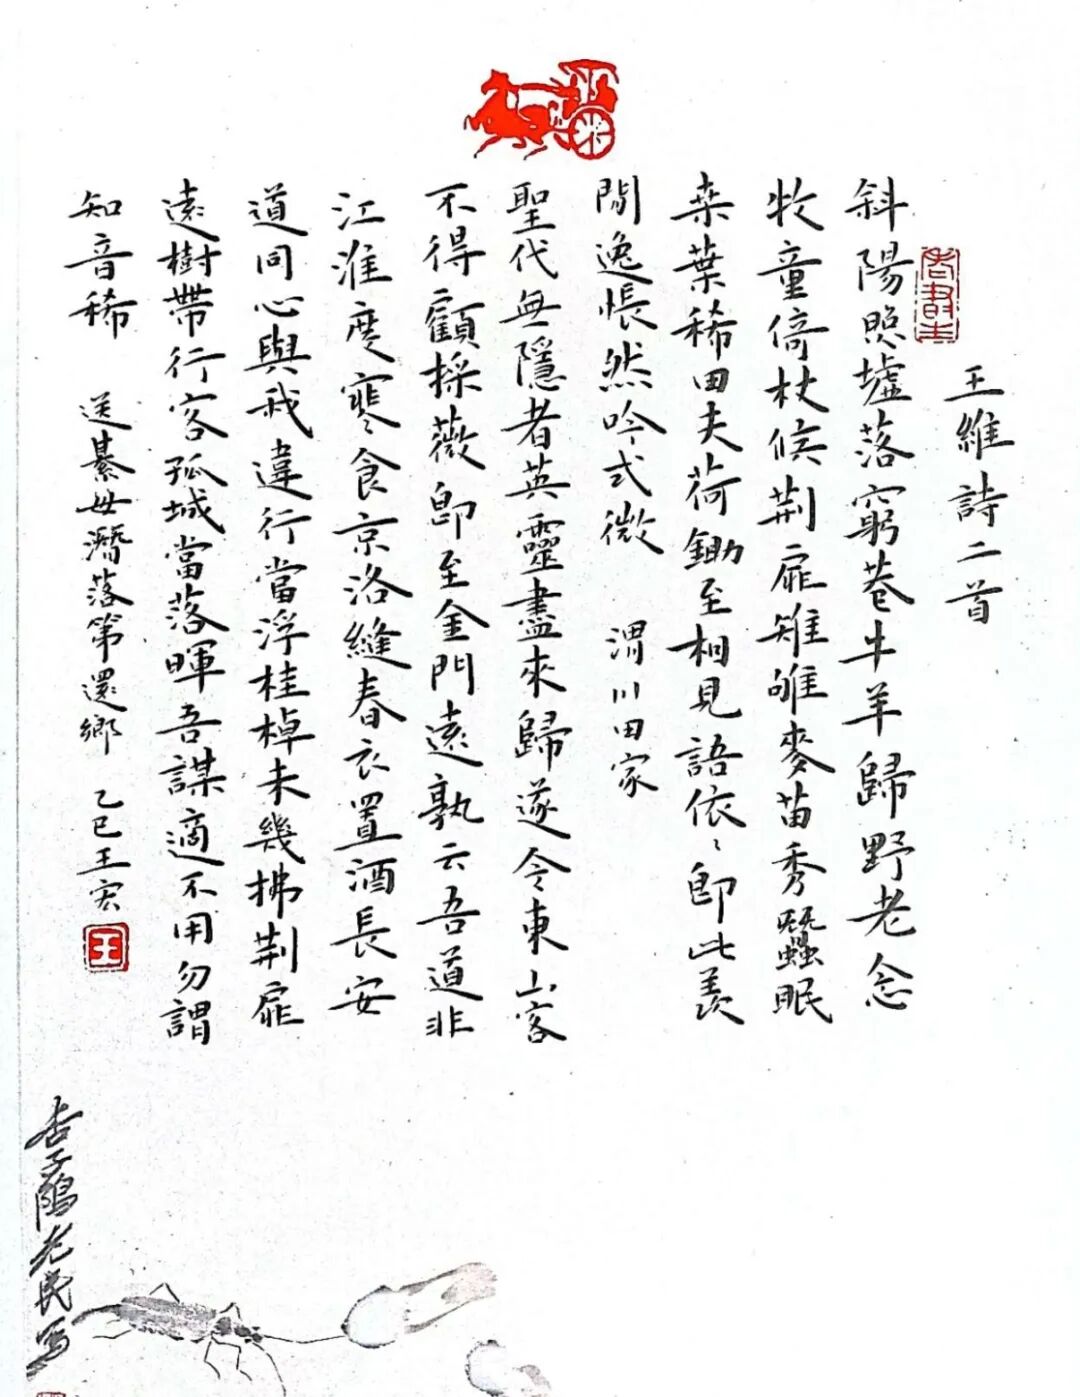 王維詩二首
斜陽照墟落窮巷牛羊歸野老念
牧童倚杖候荆扉雉雊麥苗秀蠶眠
桒葉稀田夫荷鋤至相見語依〻即此羨
閒逸悵然吟式微 渭川田家
聖代無隱者英靈盡來歸遂令東山客
不得顧採薇即至金門遠孰云吾道非
江淮度寒食京洛縫春衣置酒長安
道同心與我違行當浮桂棹未幾拂荆扉
遠樹帶行客孤城當落暉吾謀適不用勿謂
知音稀 送綦毋潛落第還鄉 乙巳王宏
王
杏子隝老民寫